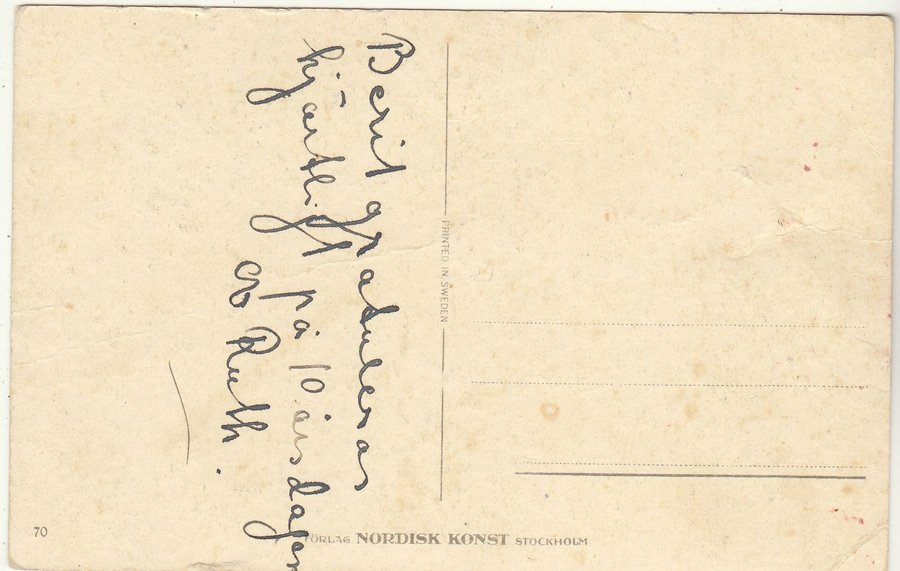 Berit gratuleras
hjärtligt på 10 årsdagen
av Ruth.
PRINTED IN SWEDEN
70
FÖRLAG NORDISK KONST STOCKHOLM